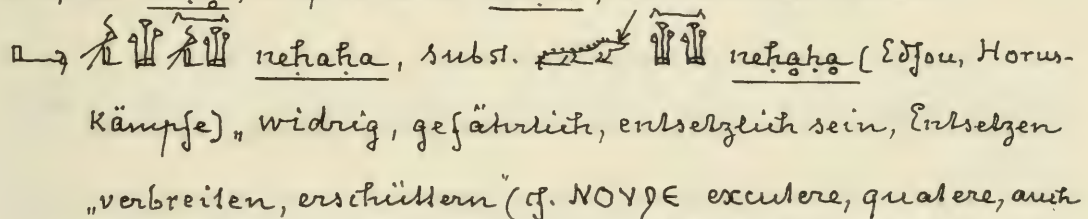 neḥaḥa, subst. neḥaḥa (Edfou, Horus-
Kämpfe) „widrig, gefährlich, entsetzlich sein, Entsetzen
„verbreiten, erschüttern" (cf. ⲚⲞⲨϨⲈ excutere, quatere, auch